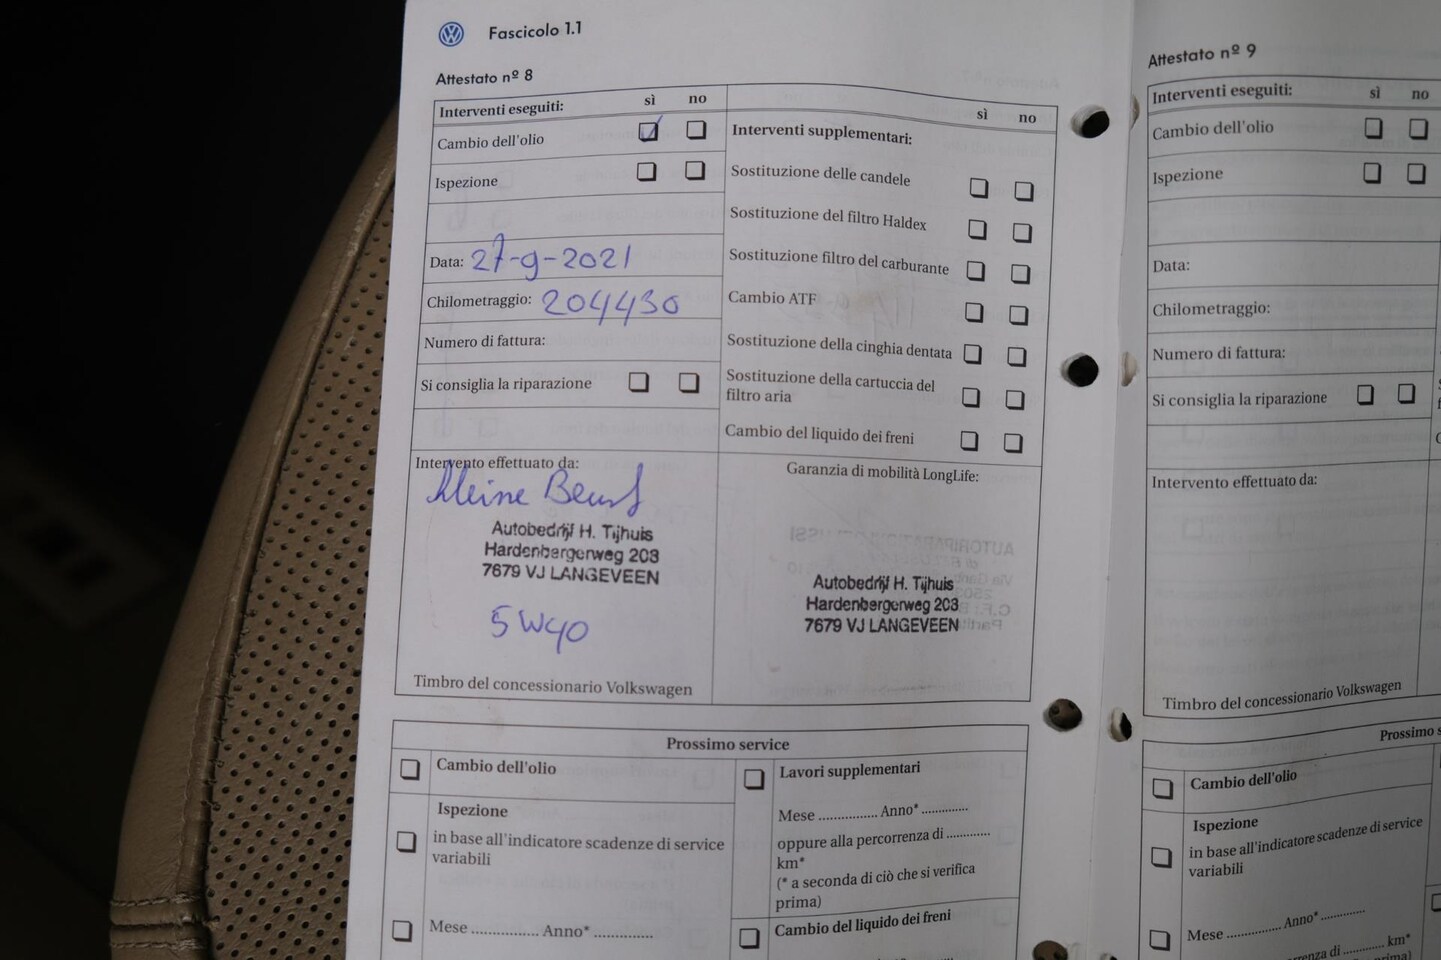 Fascicolo 1.1
Attestato nº 8
Interventi eseguiti: sì no
Cambio dell'olio
Ispezione
Data: 27-9-2021
Chilometraggio: 204430
Numero di fattura:
Si consiglia la riparazione
sì no
Interventi supplementari:
Sostituzione delle candele
Sostituzione del filtro Haldex
Sostituzione filtro del carburante
Cambio ATF
Sostituzione della cinghia dentata
Sostituzione della cartuccia del
filtro aria
Cambio del liquido dei freni
Intervento effettuato da:
Kleine
Autobedrijf H. Tijhuis
Hardenbergerweg 203
7679 VJ LANGEVEEN
5W40
Timbro del concessionario Volkswagen
Garanzia di mobilità LongLife:
Autobedrijf H. Tijhuis
Hardenbergerweg 203
7679 VJ LANGEVEEN
Prossimo service
Cambio dell'olio
Ispezione
in base all'indicatore scadenze di service
variabili
Mese ................ Anno* ..............
Lavori supplementari
Mese ................ Anno* ............
oppure alla percorrenza di ............
km*
(* a seconda di ciò che si verifica
prima)
Cambio del liquido dei freni
Attestato nº 9
Interventi eseguiti: sì no
Cambio dell'olio
Ispezione
Data:
Chilometraggio:
Numero di fattura:
Si consiglia la riparazione
Intervento effettuato da:
Timbro del concessionario Volkswagen
Prossimo s
Cambio dell'olio
Ispezione
in base all'indicatore scadenze di service
variabili
Mese ................ Anno* ............
renza di ............ km*
prima)